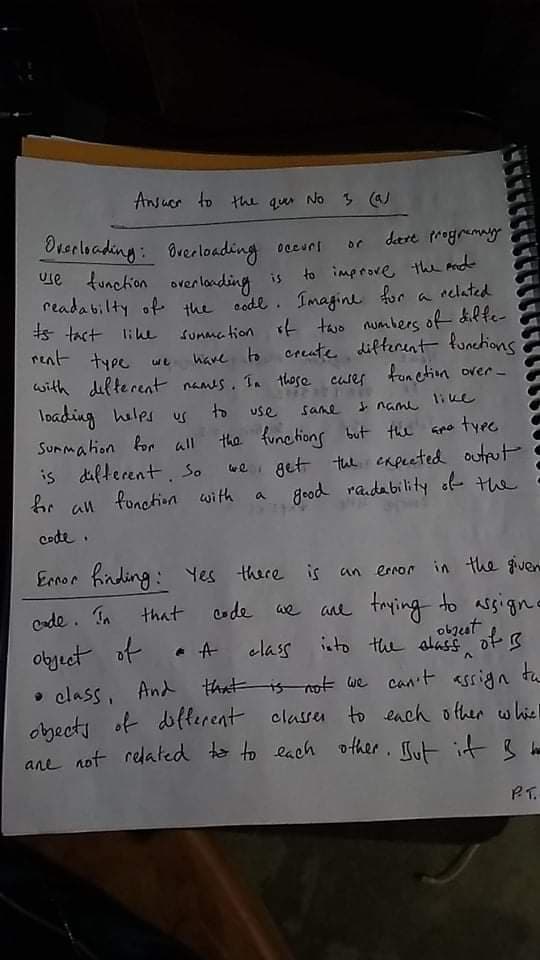 Answer to the ques No 3 (a)
Overloading: Overloading occurs or programmer
use function overloading is to improve the
readabilty of the code. Imagine for a related
tast like summation of two numbers of diffe-
rent type we have to create different functions
with different names. In those cases function over-
loading helps us to use same name like
summation for all the functions but the type
is different. So we get the expected output
for all function with a good readability of the
code.
Error finding: Yes there is an error in the given
code. In that code we are trying to assign
object of A class into the class object of B
class. And that is not we can't assign
objects of different classes to each other
are not related to to each other. But if B
P.T.